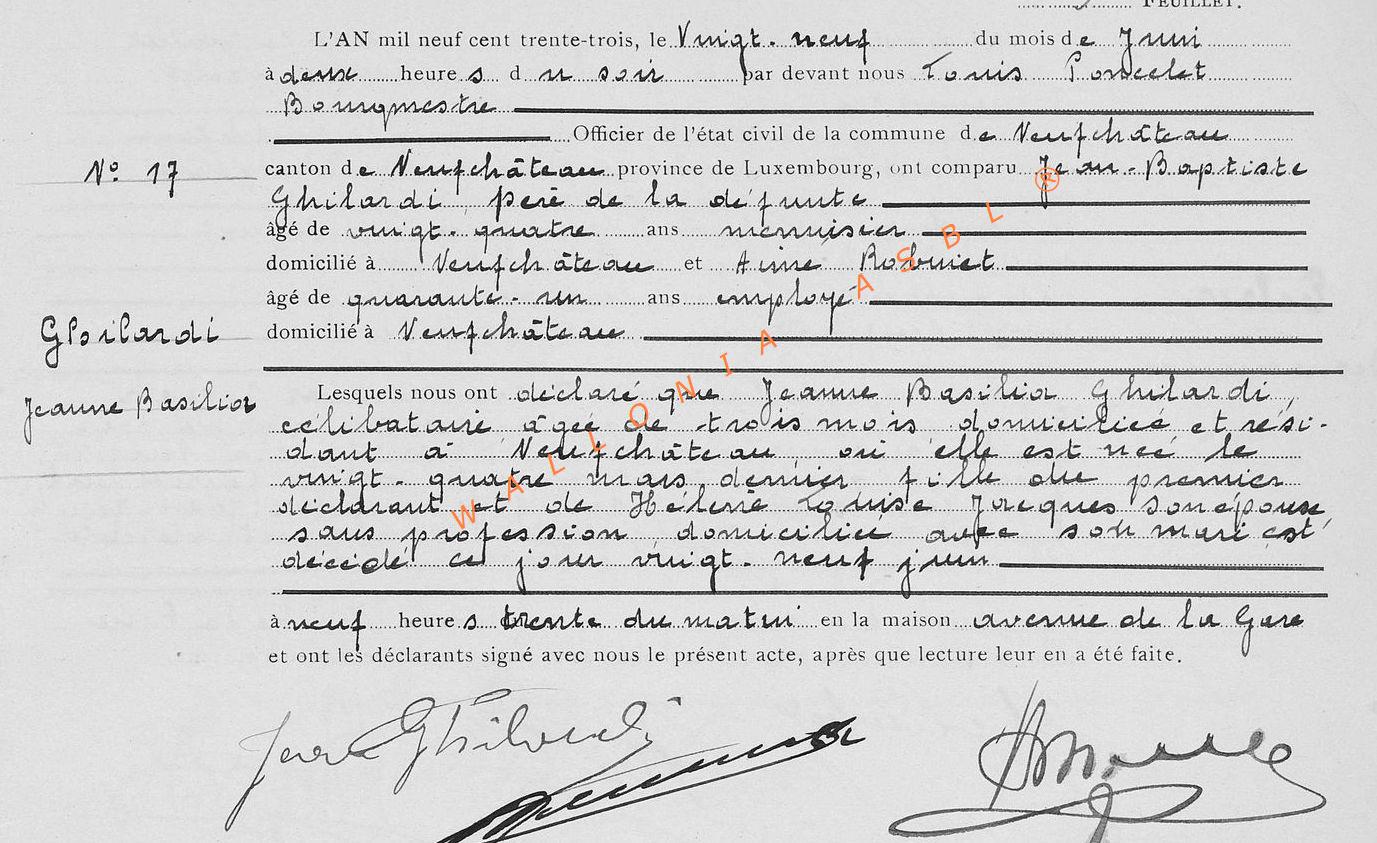 FEUILLET.
L'AN mil neuf cent trente-trois, le Vingt-neuf du mois de Juin
à deux heures du soir par devant nous Louis Poncelet
Bourgmestre
Officier de l'état civil de la commune de Neufchâteau
N° 17
canton de Neufchâteau province de Luxembourg, ont comparu Jean-Baptiste
Ghilardi, père de la défunte
âgé de vingt-quatre ans menuisier
domicilié à Neufchâteau et Aimé
âgé de quarante-un ans employé
Ghilardi
domicilié à Neufchâteau
Jeanne Basilia
Lesquels nous ont déclaré que Jeanne Basilia Ghilardi,
célibataire âgée de trois mois domiciliée et rési-
dant à Neufchâteau où elle est née le
vingt-quatre mars dernier fille du premier
déclarant et de Hélène Louise Jacques son épouse
sans profession domiciliée avec son mari est
décédé ce jour vingt-neuf juin
à neuf heures trente du matin en la maison avenue de la Gare
et ont les déclarants signé avec nous le présent acte, après que lecture leur en a été faite.
Jean Ghilardi
WALLONIA ASBL ®